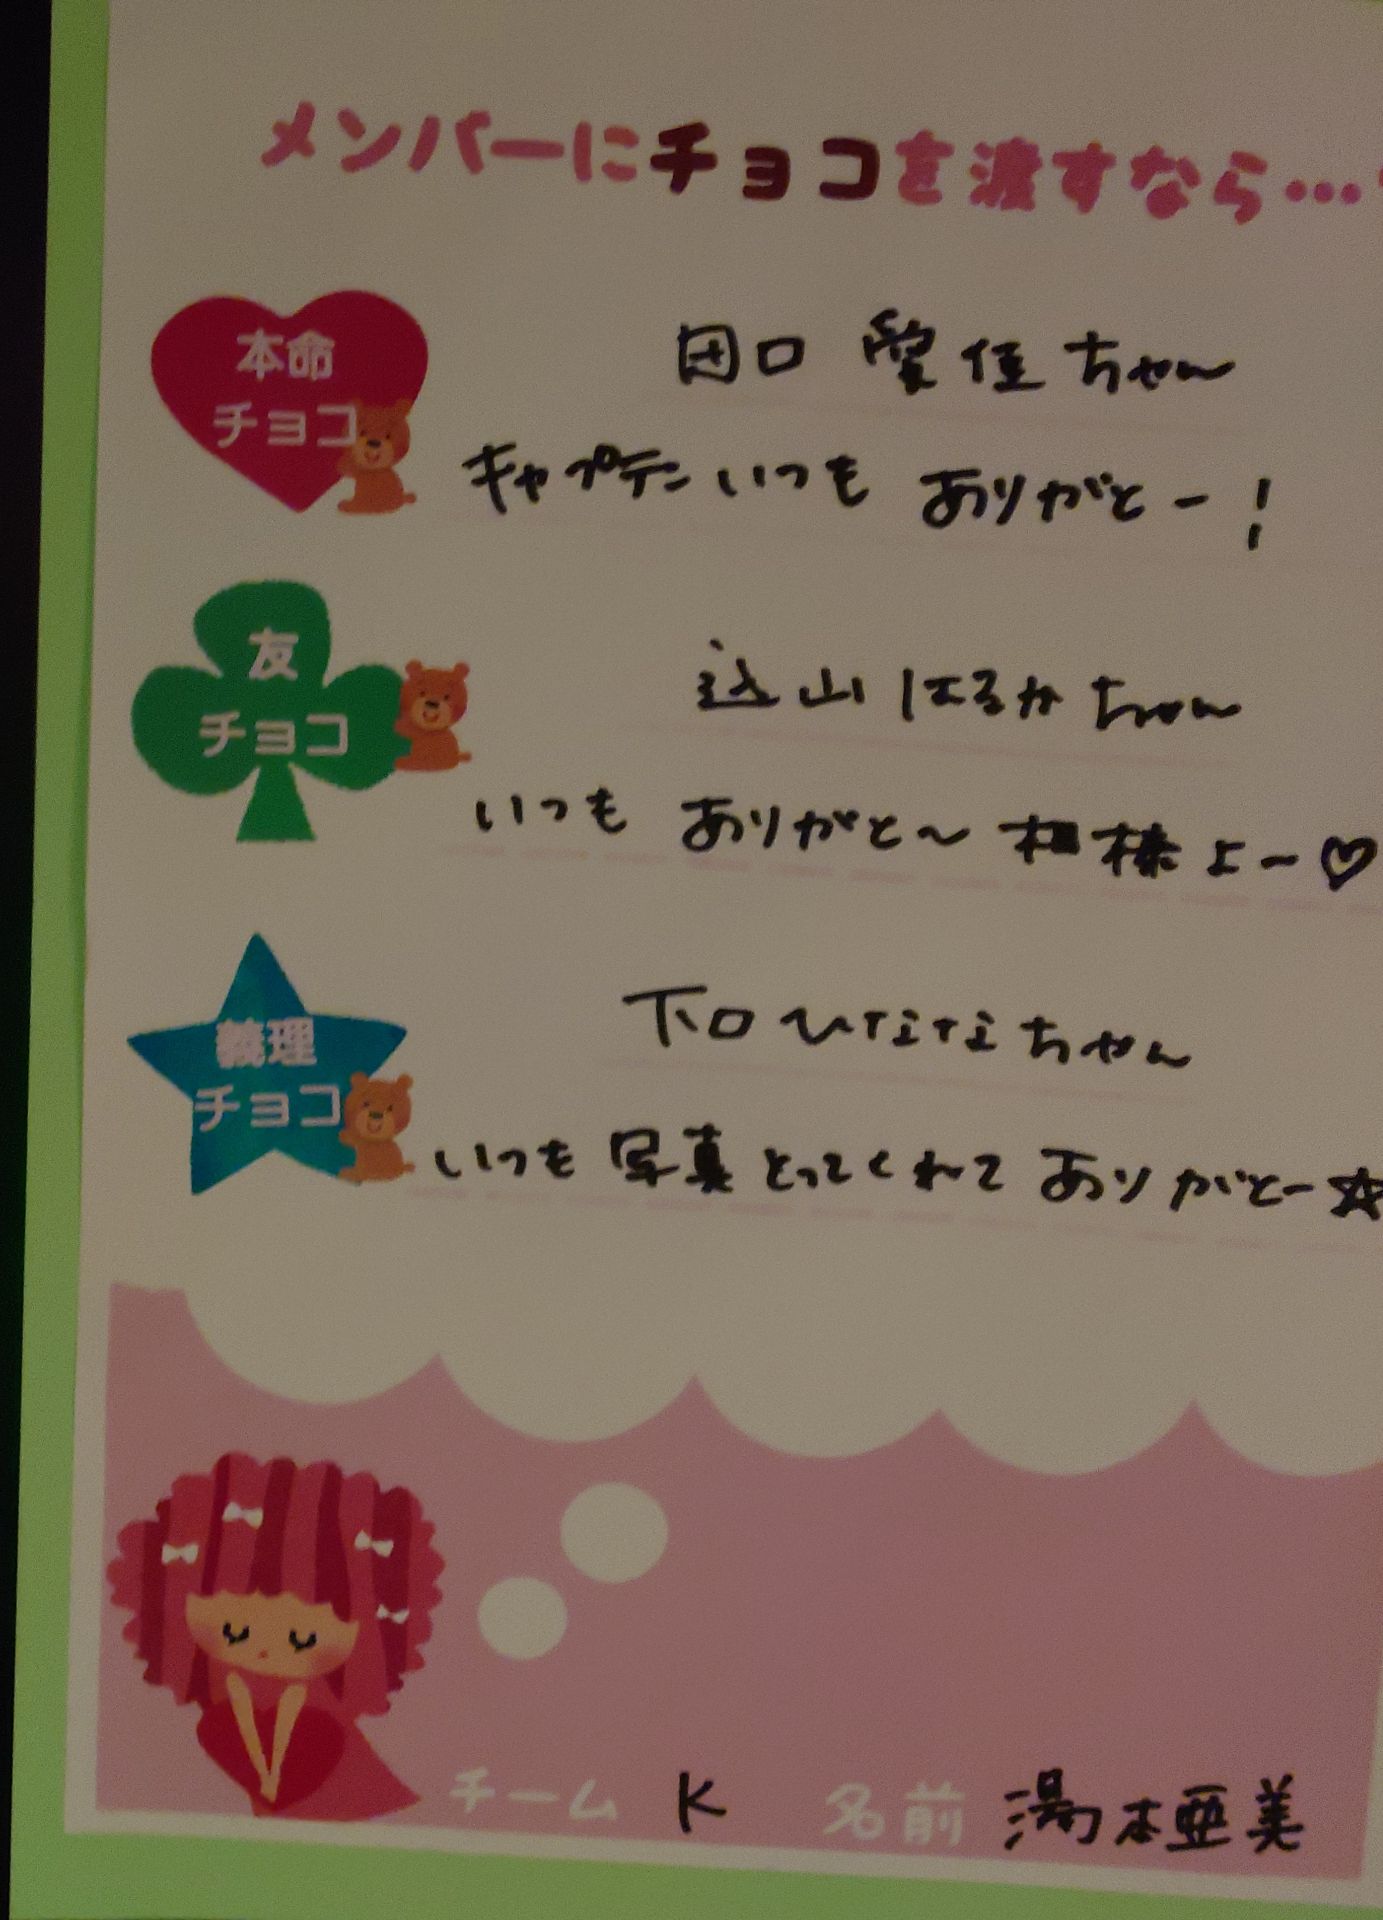 メンバーにチョコを渡すなら…
本命
チョコ
田口 愛佳ちゃん
キャプテンいつも ありがとー!
友
チョコ
込山はるかちゃん
いつも ありがと〜 相棒よー♡
義理
チョコ
下口ひななちゃん
いつも写真とってくれて ありがとー☆
チーム K 名前 湯本亜美